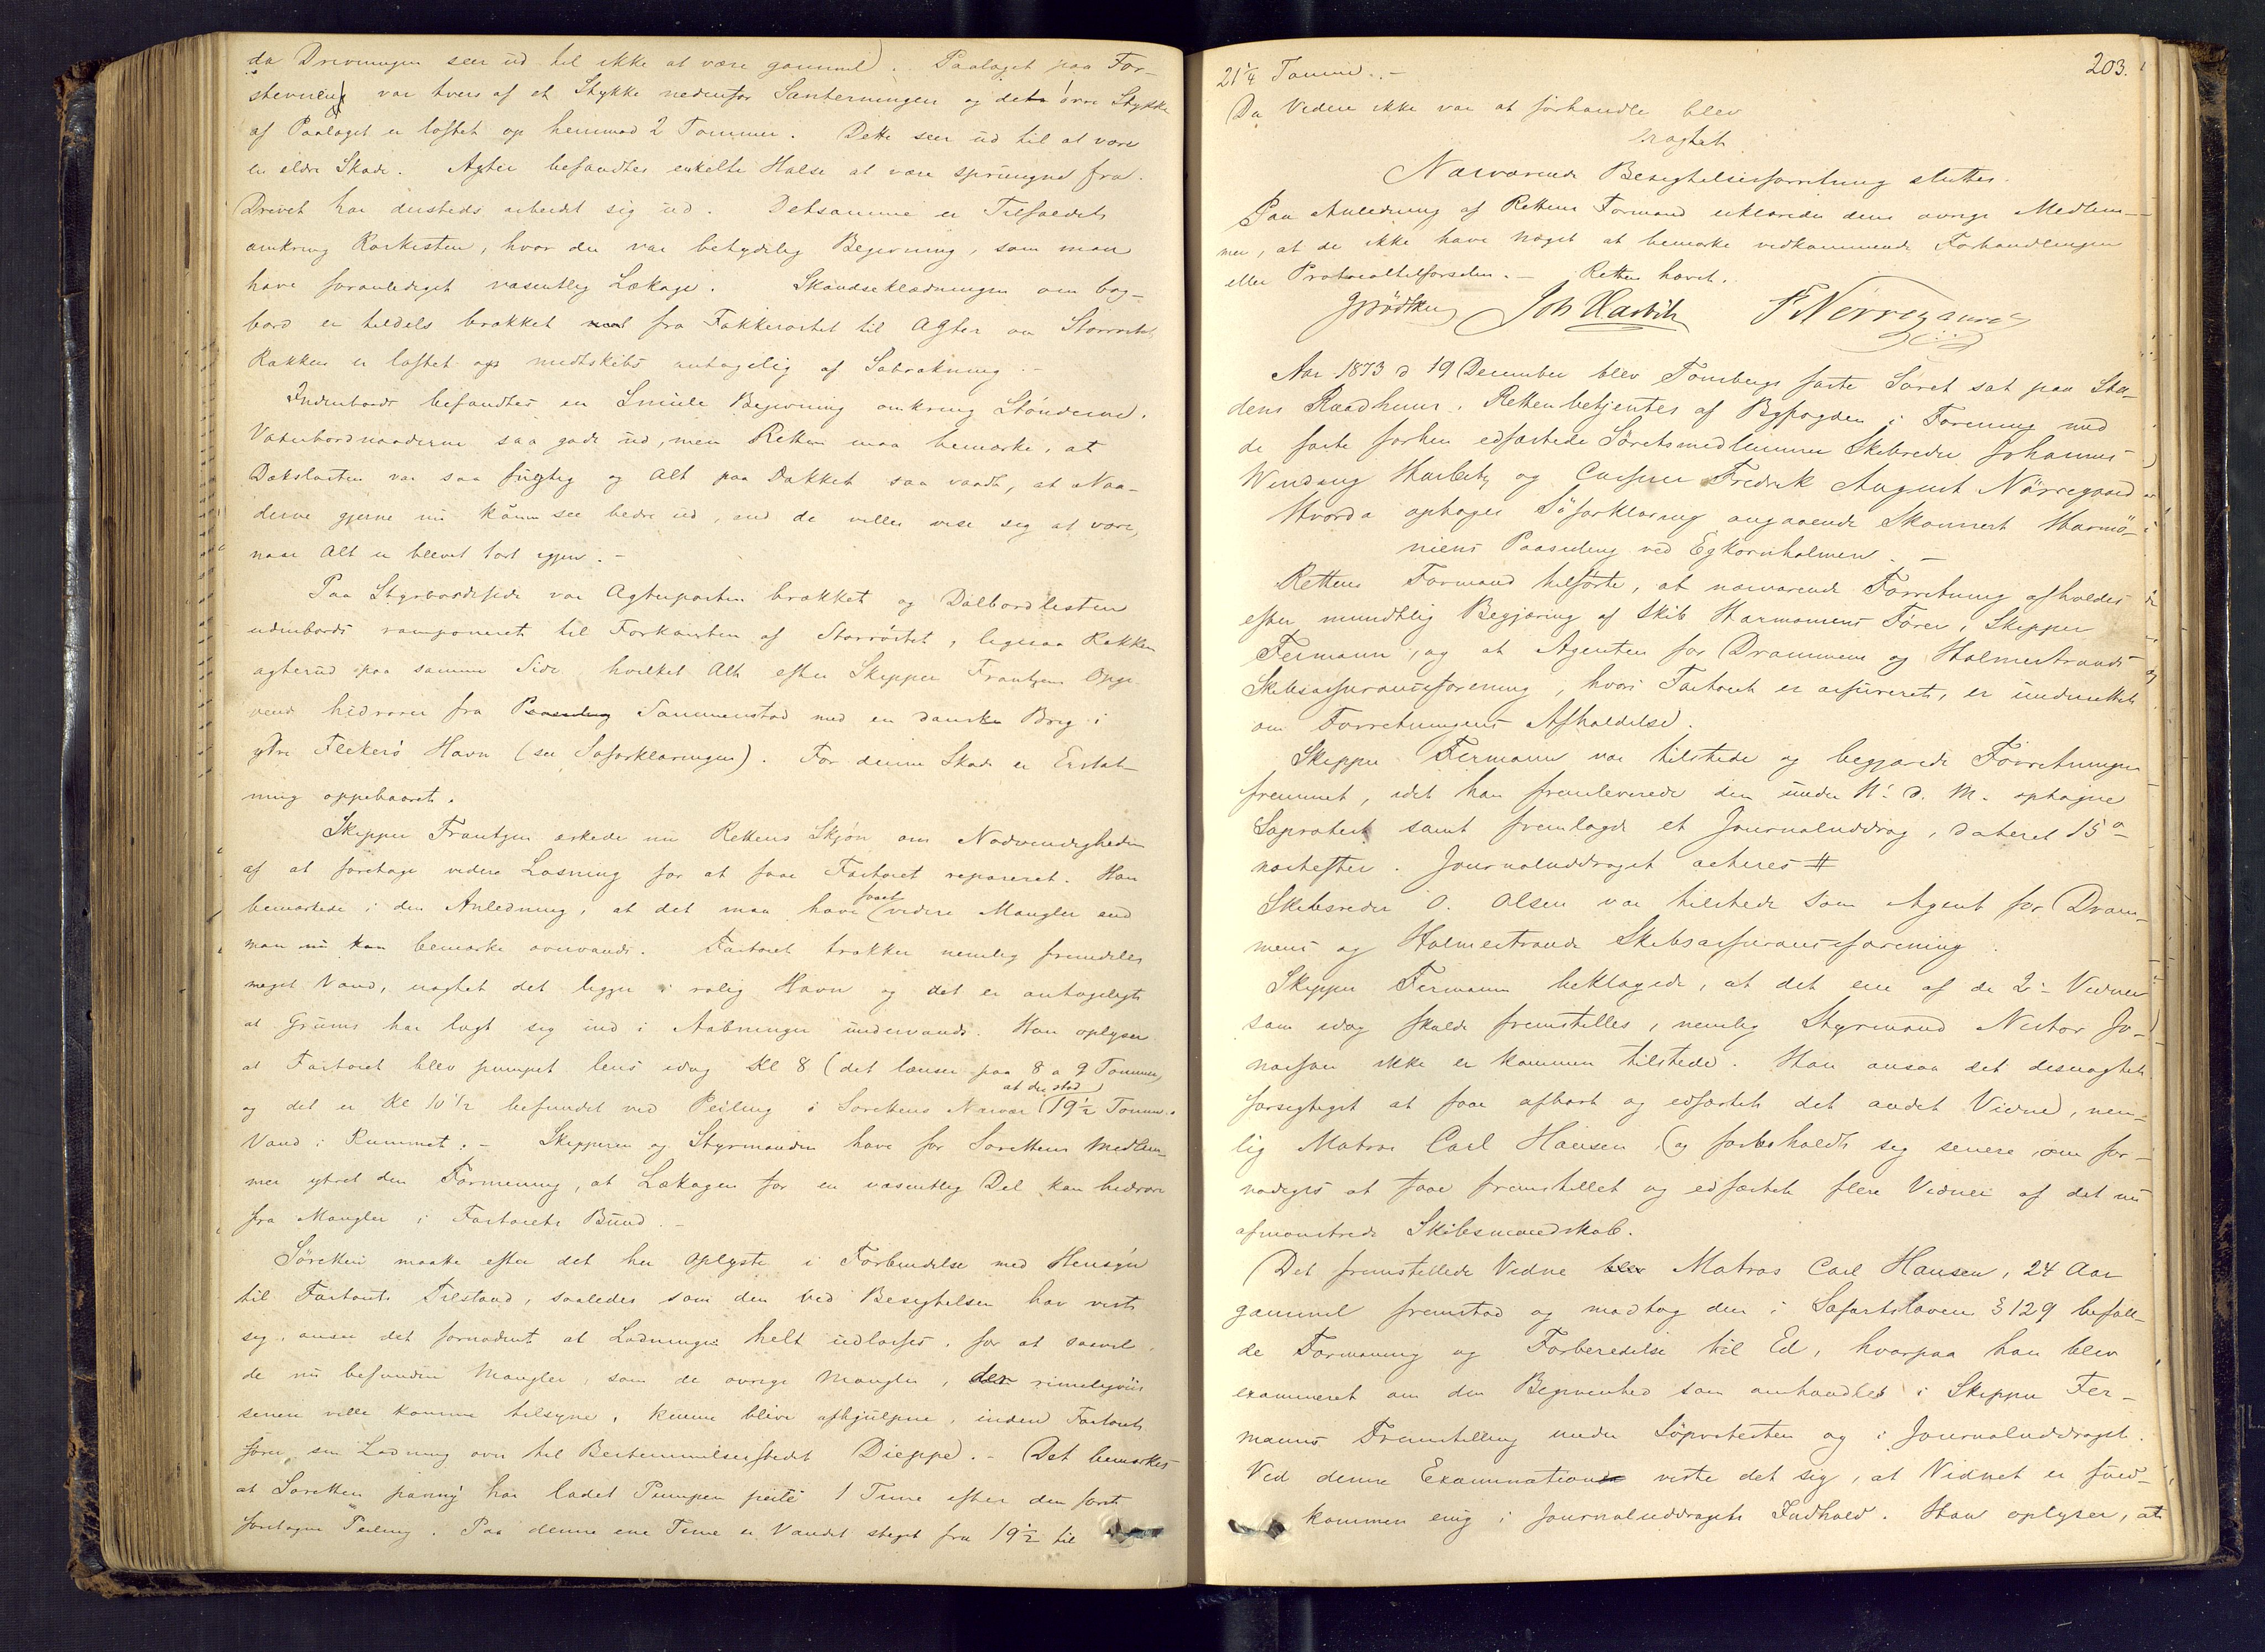 da Drivningen seer ud til ikke at være gammel). Paalaget paa For-
stevnen var tvers af et Stykke nedenfor Santerningen og det øvre Stykke
af Paalaget er løftet op henimod 2 Tommer. Dette seer ud til at være
en ældre Skade. Agter befandtes enkelte Halse at være sprungne fra.
Drevet har dersteds arbeidet sig ud. Detsamme er Tilfældet
omkring Rorkisten, hvor der var betydelig Begivning, som maa
have foranlediget væsentlig Lækage. Skandseklædningen om bag-
bord er tildels brækket fra Fokkerøstet til Agter om Storrøstet,
Rækken er løftet op midtskibs antagelig af Søbrækning. -
Indenbords befandtes en Smule Begivning omkring Støtterne.
Vaterbordnaaderne saa gode ud, men Retten maa bemærke, at
Dækslasten var saa fugtig og Alt paa Dækket saa vaadt, at Naa-
derne gjerne nu kunne see bedre ud, end de ville vise sig at være,
naar Alt er blevet tørt igjen. -
Paa Styrbordsside var Agterporten brækket og Dolbordlisten
udenbords ramponeret til Forkanten af Storrøstet, ligesaa Rækken
agterud paa samme Side hvilket Alt efter Skipper Frantzens Opgi-
vende hidrører fra Sammenstød med en dansk Brig i
ydre Flekerø Havn (see Søforklaringen). For denne Skade er Erstat-
ning oppebaaret.
Skipper Frantzen æskede nu Rettens Skjøn om Nødvendigheden
af at foretage videre Losning for at faae Fartøiet repareret. Han
bemærkede i den Anledning, at det maa have faaet videre Mangler end
man nu kan bemærke ovenvands. Fartøiet trækker nemlig fremdeles
meget Vand, uagtet det ligger i rolig Havn og det er antageligt
at Grums har lagt sig ind i Aabninger undervands. Han oplyser
at Fartøiet blev pumpet lens idag Kl 8 (det lænser paa 8 a 9 Tommer)
og det er Kl 10 1/2 befundet ved Peiling i Sørettens Nærvær at der stod 19 1/2 Tomme
Vand i Rummet. - Skipperen og Styrmanden have for Sørettens Medlem-
mer ytret den Formening, at Lækagen for en væsentlig Del kan hidrøre
fra Mangler i Fartøiets Bund. -
Søretten maatte efter det her Oplyste i Forbindelse med Hensyn
til Fartøiets Tilstand, saaledes som den ved Besigtelsen har vist
sig, ansee det fornødent at Ladningen helt udlosses, for at saavel
de nu befundne Mangler, som de øvrige Mangler, der rimeligviis
senere ville komme tilsyne, kunne blive afhjulpne, inden Fartøiet
fører sin Ladning over til Bestemmelsesstedet Dieppe. - Det bemærkes
at Søretten paany har ladet Pumpen peile 1 Time efter den først
foretagne Peiling. Paa denne ene Time er Vandet steget fra 19 1/2 til
203.
21 1/4 Tomme. -
Da Videre ikke var at forhandle blev
Nærværende Besigtelsesforretning sluttes.
Paa Anledning af Rettens Formand erklærede dens øvrige Medlem-
mer, at de ikke have Noget at bemærke vedkommende Forhandlingen
eller Protocoltilførselen. - Retten hævet.
Joh Harbitz F Nørregaard
Aar 1873 d 19 December blev Tønsbergs faste Søret sat paa Sta-
dens Raadhuus. Retten betjentes af Byfogden i Forening med
de faste forhen edfæstede Søretsmedlemmer Skibsreder Johannes
Windtz Harbitz og Casper Fredrik August Nørregaard
Hvorda optages Søforklaring angaaende Skonnert Harmo-
niens Paaseiling ved Egkornholmen. -
Rettens Formand tilførte, at nærværende Forretning afholdes
efter mundtlig Begjæring af Skib Harmoniens Fører, Skipper
Fermann, og at Agenten for Drammens og Holmestrands
Skibsassuranceforening, hvori Fartøiet er assureret, er underrettet
om Forretningens Afholdelse.
Skipper Fermann var tilstede og begjærede Forretningen
fremmet, idet han fremleverede den under 11' d. M. optagne
Søprotest samt fremlagde et Journaluddrag, dateret 15de
næstefter. Journaluddraget acteres #
Skibsreder O. Olsen var tilstede som Agent for Dram-
mens og Holmestrands Skibsassuranceforening.
Skipper Fermann beklagede, at det ene af de 2de Vidner
som idag skulde fremstilles, nemlig Styrmand Nestor Jo-
nassen ikke er kommen tilstede. Han ansaa det desuagtet
forsigtigst at faae afhørt og edfæstet det andet Vidne, nem-
lig Matros Carl Hansen, og forbeholdt sig senere om for-
nødiges at faae fremstillet og edfæstet flere Vidner af det nu
afmønstrede Skibsmandskab.
Det fremstillede Vidne Matros Carl Hansen, 24 Aar
gammel fremstod og modtog den i Søfartsloven § 129 befall-
de Formaning og Forberedelse til Ed, hvorpaa han blev
examineret om den Begivenhed som omhandles i Skipper Fer-
manns Fremstilling under Søprotesten og i Journaluddraget.
Ved denne Examination viste det sig, at Vidnet er fuld-
kommen enig i Journaluddragets Indhold. Han oplyser, at